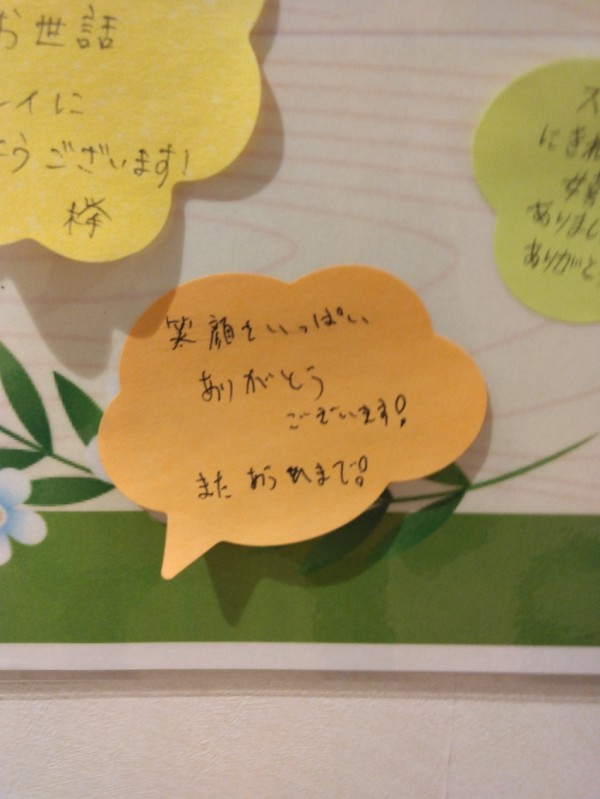 お世話
レイに
とうございます!
欅
笑顔をいっぱい
ありがとう
ございます!
また あう まで!
ス
にきれ
ありまし
ありがと